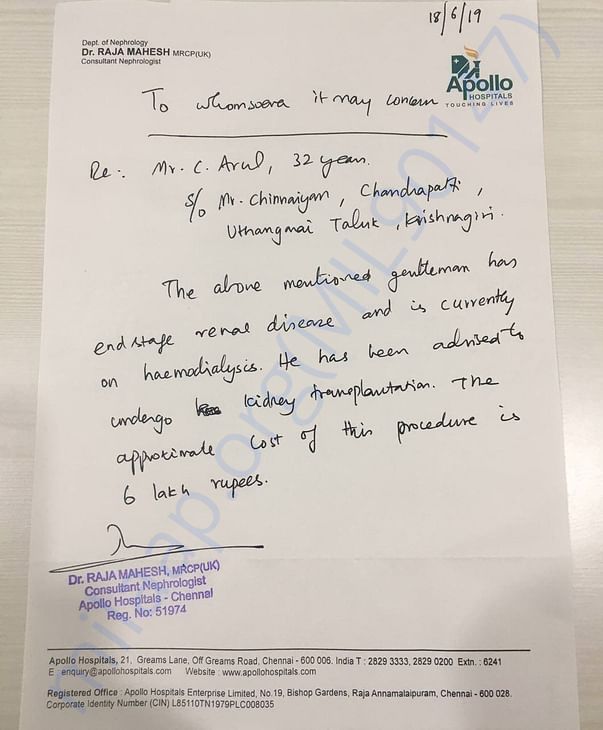 18/6/19
Dept. of Nephrology
Dr. RAJA MAHESH MRCP(UK)
Consultant Nephrologist
Apollo
HOSPITALS
TOUCHING LIVES
To whomsoera it may concern
Re:. Mr. C. Arul, 32 years.
S/o Mr. Chinnaiyan, Chandrapatti,
Uthangarai Taluk, Krishnagiri.
The above mentioned gentleman has
end stage renal disease and is currently
on haemodialysis. He has been advised to
undergo kidney transplantation. The
approximate cost of this procedure is
6 lakh rupees.
Dr. RAJA MAHESH, MRCP(UK)
Consultant Nephrologist
Apollo Hospitals - Chennai
Reg. No: 51974
Apollo Hospitals, 21, Greams Lane, Off Greams Road, Chennai - 600 006. India T : 2829 3333, 2829 0200 Extn. : 6241
E : enquiry@apollohospitals.com Website : www.apollohospitals.com
Registered Office : Apollo Hospitals Enterprise Limited, No.19, Bishop Gardens, Raja Annamalaipuram, Chennai - 600 028.
Corporate Identity Number (CIN) L85110TN1979PLC008035
milaap.org(MIL90147)